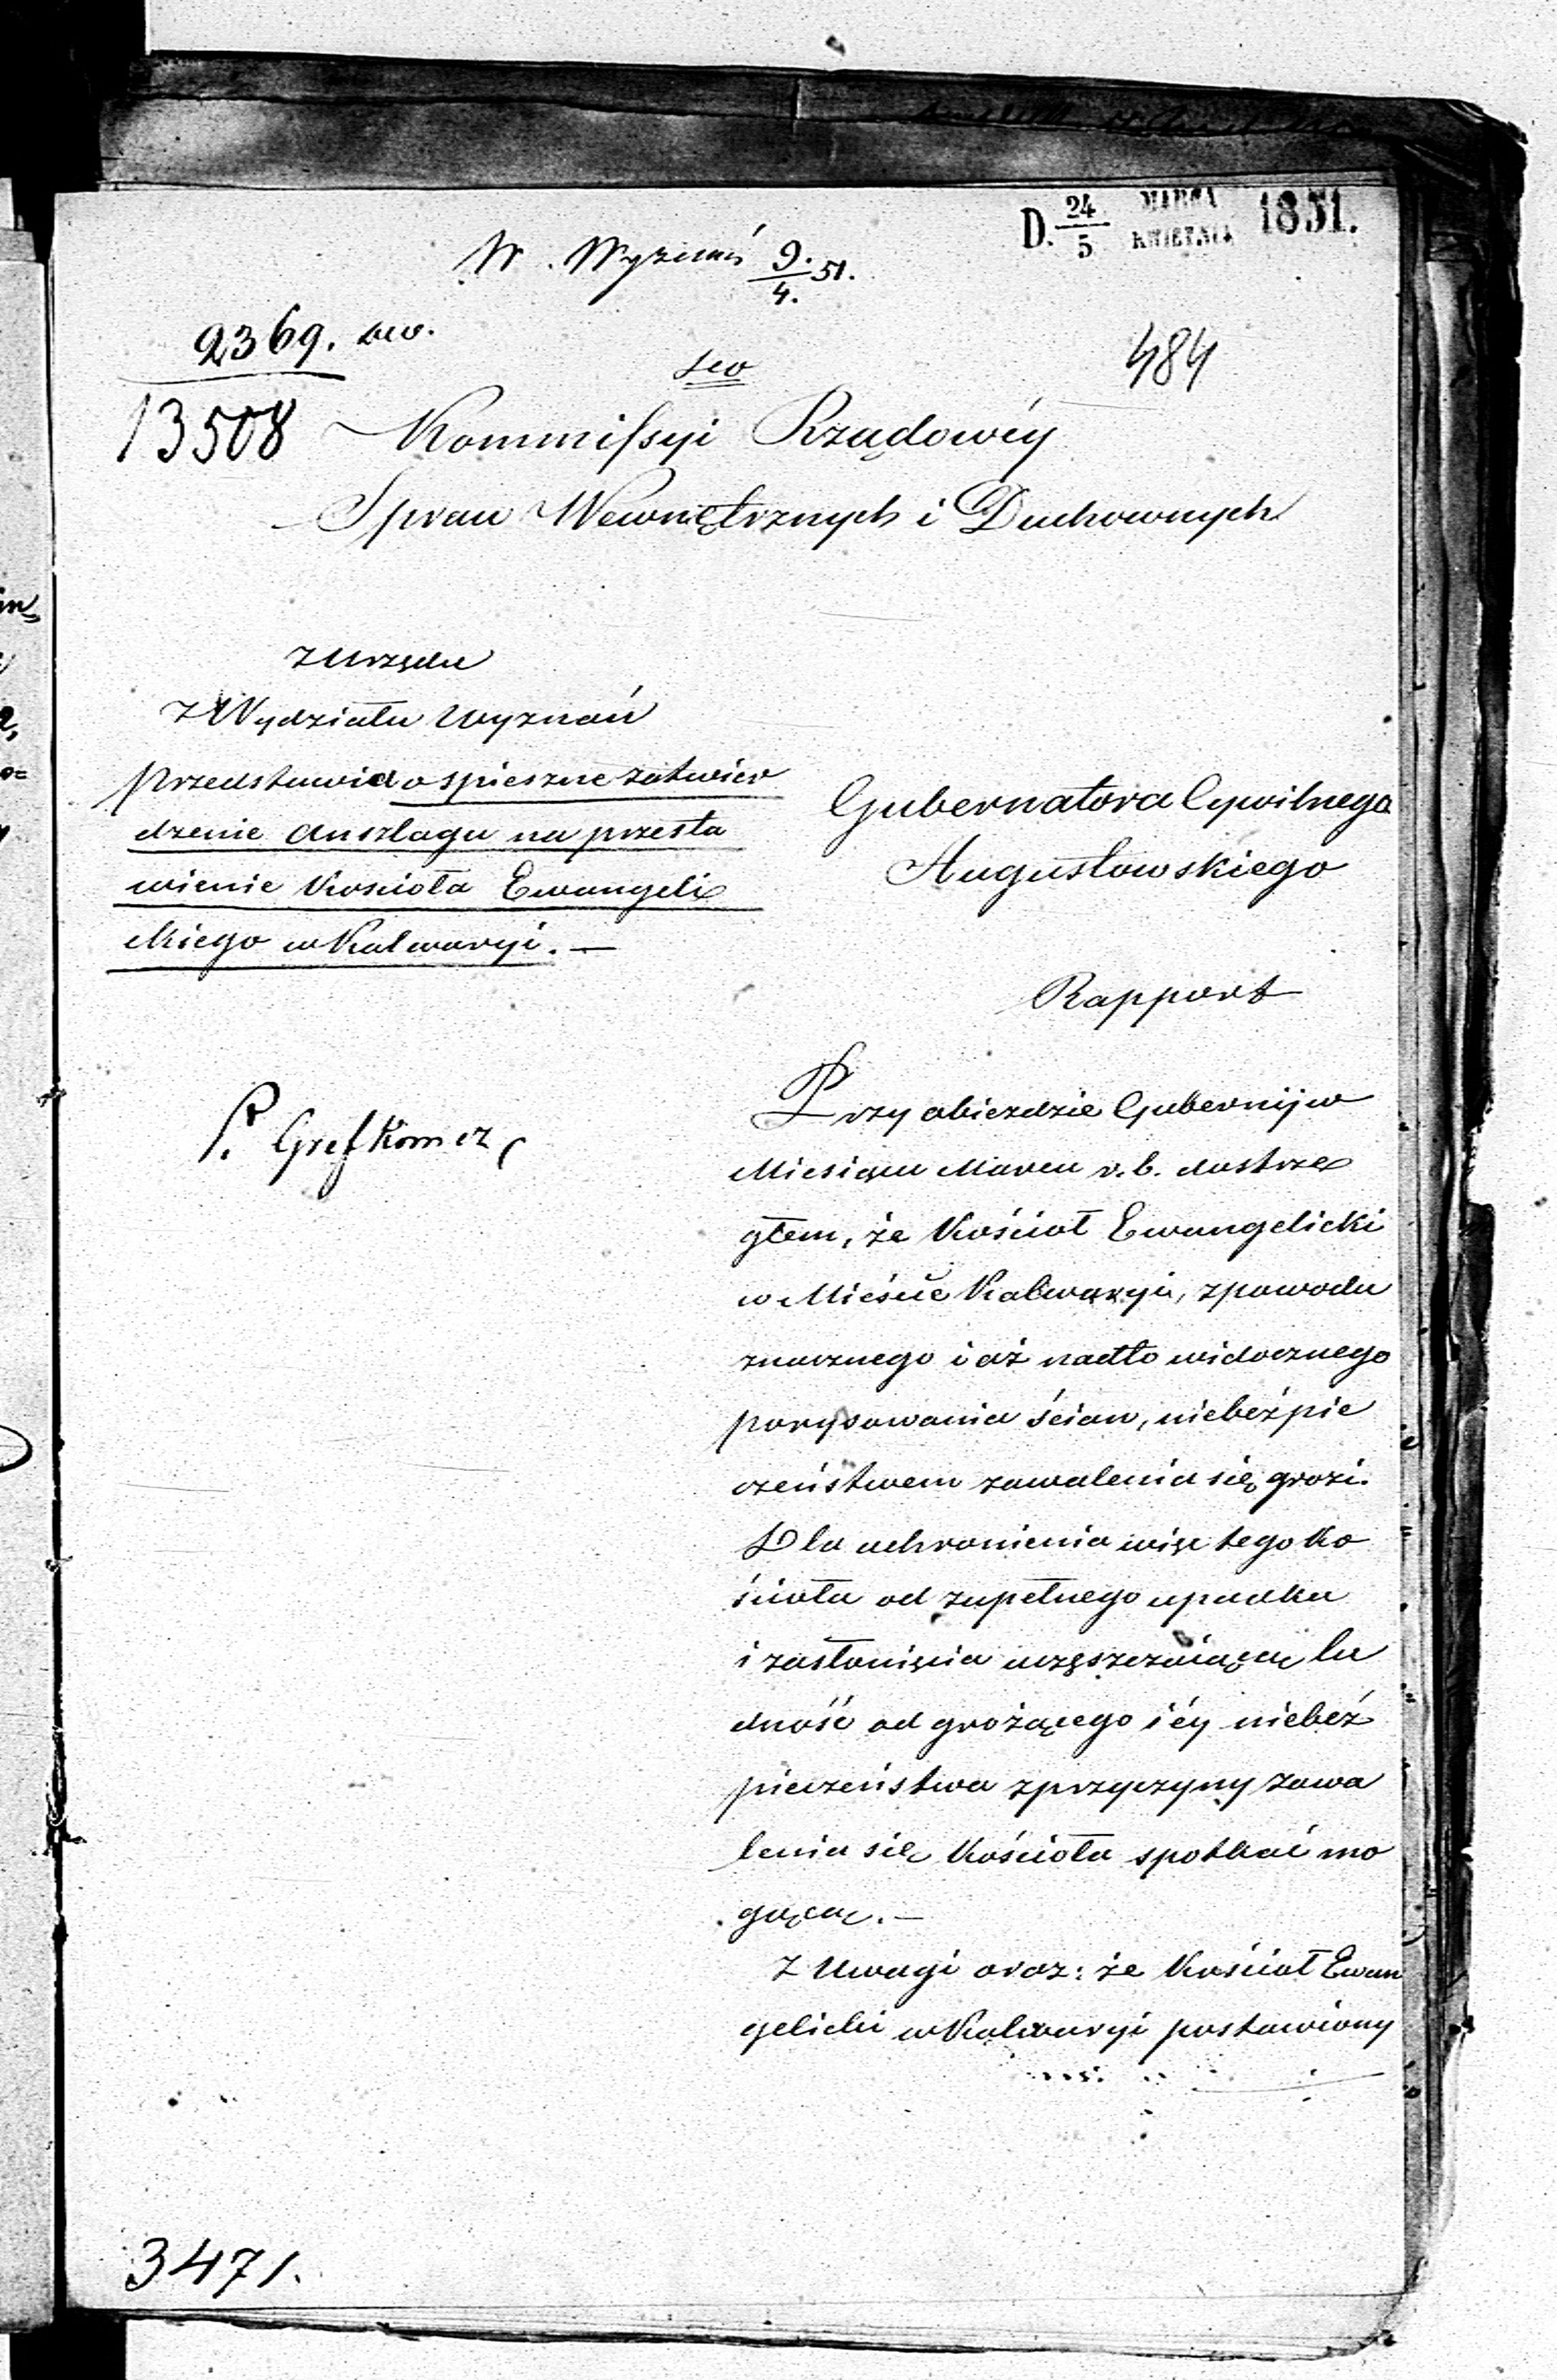 D. 24/5 MARCA KWIETNIA 1851.
W. Wyznań 9./4. 51.
2369.
484
13508
Do
Kommissyi Rządowéy
Spraw Wewnętrznych i Duchownych
z Urzędu
Z Wydziału Wyznań
Przedstawia o spieszne zatwier
dzenie Anszlagu na przesta
wienie Kościoła Ewangeli
ckiego w Kalwaryi. —
Gubernatora Cywilnego
Augustowskiego
Rapport
P.
Przy obieździe Gubernij w
Miesiącu Marcu r. b. dostrze
głem, że Kościoł Ewangelicki
w Mieście Kalwaryi, z powodu
znacznego i aż nadto widocznego
porysowania ścian, niebeźpie
czeństwem zawalenia się grozi.
Dla uchronienia więc tego Ko
ścioła od zupełnego upadku
i zasłonięcia uczęszczaiącą lu
dność od grożącego iéy niebeź
pieczeństwa z przyczyny zawa
lenia się Kościoła spotkać mo
gącą. —
Z Uwagi oraz: że Kościoł Ewan
gelicki w Kalwaryi postawiony
3471.